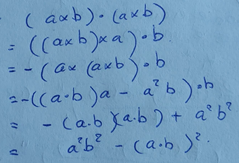 (a×b)•(a×b)
= ((a×b)×a)•b
= -(a×(a×b)•b
= -((a•b)a - a²b)•b
= -(a•b)(a•b) + a²b²
= a²b² - (a•b)².